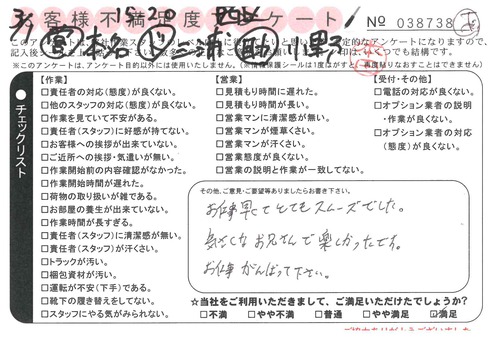 3/1 15:20
お客様不満足度アンケート
№ 038738
※このアンケートは、アンケート目的以外には使用いたしません。
チェックリスト
【作業】
□責任者の対応(態度)が良くない。
□他のスタッフの対応(態度)が良くない。
□作業を見ていて不安がある。
□責任者(スタッフ)に好感が持てない。
□お客様への挨拶が出来ていない。
□ご近所への挨拶・気遣いが無い。
□作業開始前の内容確認がなかった。
□作業開始時間が遅れた。
□荷物の取り扱いが雑である。
□お部屋の養生が出来ていない。
□作業時間が長すぎる。
□責任者(スタッフ)に清潔感が無い。
□責任者(スタッフ)が汗くさい。
□トラックが汚い。
□梱包資材が汚い。
□運転が不安(下手)である。
□靴下の履き替えをしてない。
□スタッフにやる気がみられない。
【営業】
□見積もり時間に遅れた。
□見積もり時間が長い。
□営業マンに清潔感が無い。
□営業マンが煙草くさい。
□営業マンが汗くさい。
□営業態度が良くない。
□営業の説明と作業が一致してない。
【受付・その他】
□電話の対応が良くない。
□オプション業者の説明
・作業が良くない。
□オプション業者の対応
(態度)が良くない。
その他、ご意見・ご要望等ありましたらお書き下さい。
お仕事早くてとてもスムーズでした。
気さくなお兄さんで楽しかったです。
お仕事がんばって下さい。
☆当社をご利用いただきまして、ご満足いただけたでしょうか?
□不満 □やや不満 □普通 □やや満足 ☑満足
ご協力ありがとうございました